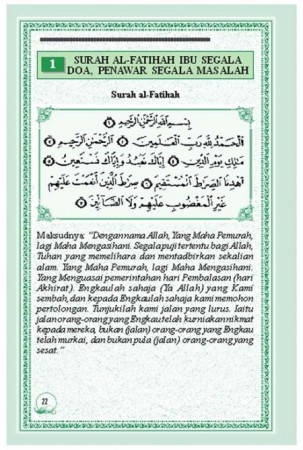 1
SURAH AL-FATIHAH IBU SEGALA
DOA, PENAWAR SEGALA MASALAH
Surah al-Fatihah
بِسْمِ اللَّهِ الرَّحْمَٰنِ الرَّحِيمِ ۝١
الْحَمْدُ لِلَّهِ رَبِّ الْعَالَمِينَ ۝٢ الرَّحْمَٰنِ الرَّحِيمِ ۝٣
مَالِكِ يَوْمِ الدِّينِ ۝٤ إِيَّاكَ نَعْبُدُ وَإِيَّاكَ نَسْتَعِينُ ۝٥
اهْدِنَا الصِّرَاطَ الْمُسْتَقِيمَ ۝٦ صِرَاطَ الَّذِينَ أَنْعَمْتَ عَلَيْهِمْ
غَيْرِ الْمَغْضُوبِ عَلَيْهِمْ وَلَا الضَّالِّينَ ۝٧
Maksudnya: “Dengan nama Allah, Yang Maha Pemurah,
lagi Maha Mengasihani. Segala puji tertentu bagi Allah,
Tuhan yang memelihara dan mentadbirkan sekalian
alam. Yang Maha Pemurah, lagi Maha Mengasihani.
Yang Menguasai pemerintahan hari Pembalasan (hari
Akhirat). Engkaulah sahaja (Ya Allah) yang Kami
sembah, dan kepada Engkaulah sahaja kami memohon
pertolongan. Tunjukilah kami jalan yang lurus. Iaitu
jalan orang-orang yang Engkau telah kurniakan nikmat
kepada mereka, bukan (jalan) orang-orang yang Engkau
telah murkai, dan bukan pula (jalan) orang-orang yang
sesat.”
22